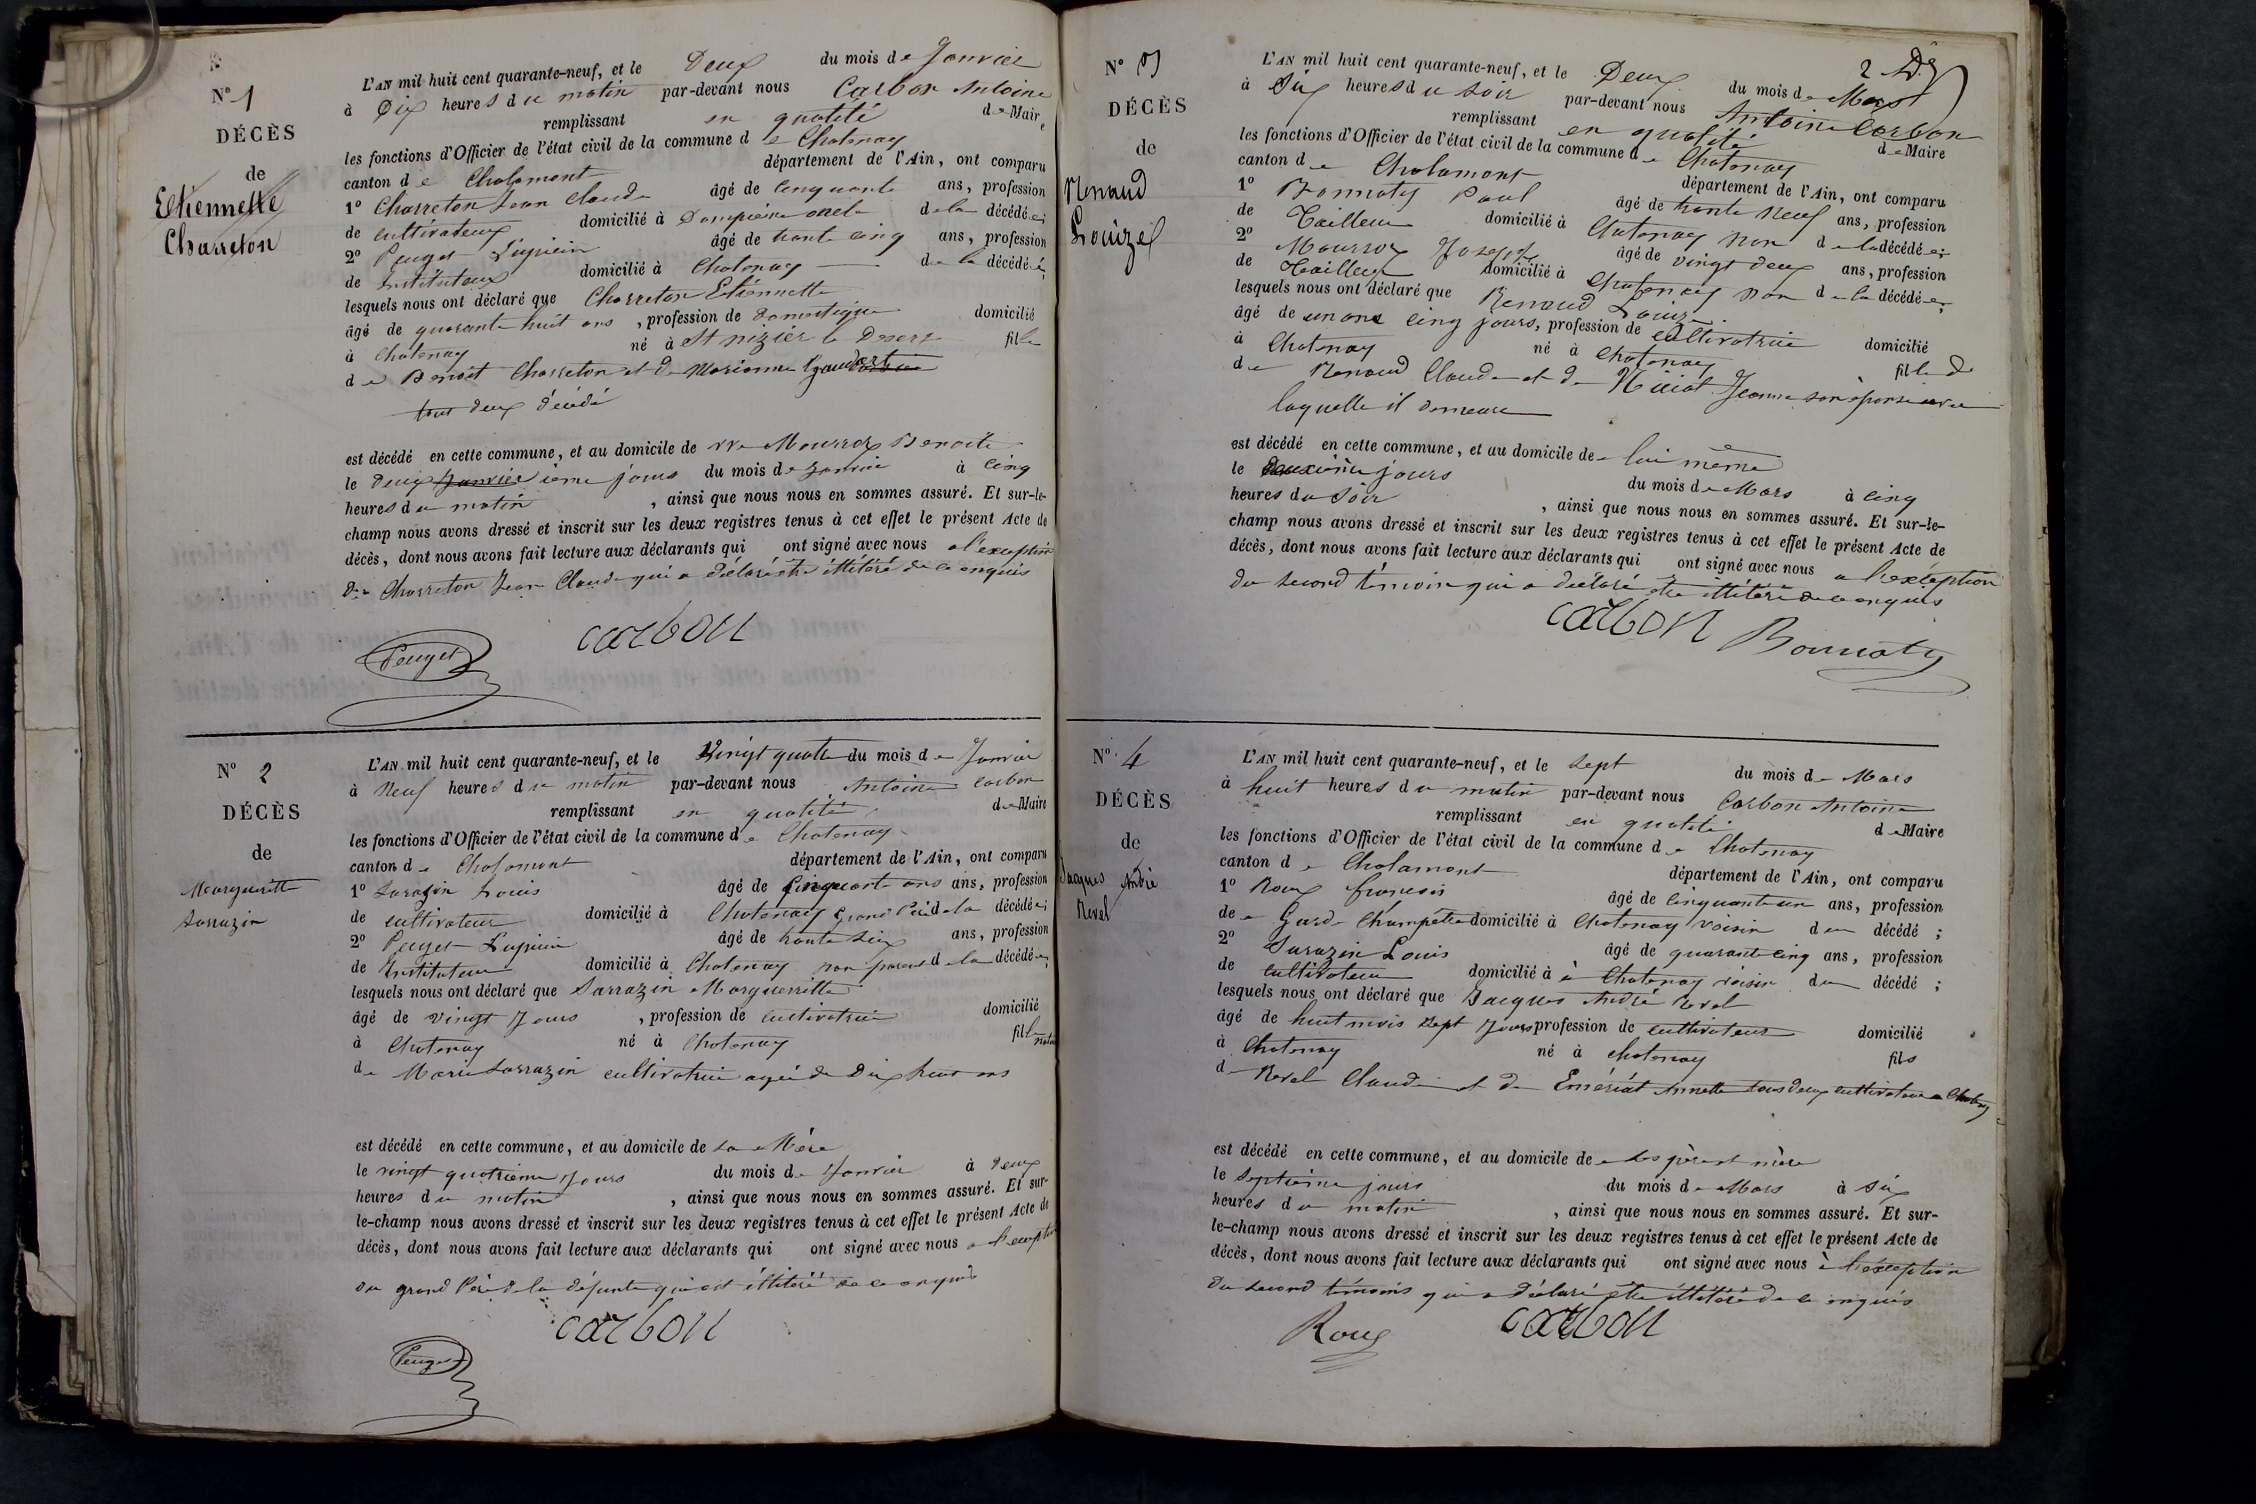 N° 1
DÉCÈS
de
Etiennette
Charreton
L'AN mil huit cent quarante-neuf, et le Deux du mois de Janvier
à Dix heures du matin par-devant nous Carbon Antoine
remplissant en qualité de Maire
les fonctions d'Officier de l'état civil de la commune de Chatenay
canton de Chalamont département de l'Ain, ont comparu
1° Charreton Jean Claude âgé de Cinquante ans, profession
de cultivateur domicilié à Dompierre oncle de la décédée;
2° Peuget Lupicin âgé de trente cinq ans, profession
de Instituteur domicilié à Chatenay de la décédée;
lesquels nous ont déclaré que Charreton Etiennette
âgé de quarante huit ans, profession de domestique domicilié
à Chatenay né à St nizier le Desert fille
de Benoit Charreton et de Marianne
tous deux décédé
est décédé en cette commune, et au domicile de Mourroz Benoite
le deux Janvier ième jours du mois de Janvier à Cinq
heures du matin, ainsi que nous nous en sommes assuré. Et sur-le-
champ nous avons dressé et inscrit sur les deux registres tenus à cet effet le présent Acte de
décès, dont nous avons fait lecture aux déclarants qui ont signé avec nous a l'exception
de Charreton Jean Claude qui a déclaré être illitéré de ce enquis
Peuget carbon
N° 2
DÉCÈS
de
Marguerite
Sarrazin
L'AN mil huit cent quarante-neuf, et le Vingt quatre du mois de Janvier
à Neuf heures du matin par-devant nous Antoine Carbon
remplissant en qualité de Maire
les fonctions d'Officier de l'état civil de la commune de Chatenay
canton de Chalamont département de l'Ain, ont comparu
1° Sarazin Louis âgé de Cinquante ans ans, profession
de cultivateur domicilié à Chatenay grand Père de la décédée;
2° Peuget Lupicin âgé de trente six ans, profession
de Instituteur domicilié à Chatenay non parent de la décédée;
lesquels nous ont déclaré que Sarrazin Marguerritte
âgé de vingt Jours, profession de cultivatrice domicilié
à Chatenay né à Chatenay fille
de Marie Sarrazin cultivatrice agée de Dix huit ans
est décédé en cette commune, et au domicile de sa Mère
le vingt quatrieme Jours du mois de Janvier à Deux
heures du matin, ainsi que nous nous en sommes assuré. Et sur-
le-champ nous avons dressé et inscrit sur les deux registres tenus à cet effet le présent Acte de
décès, dont nous avons fait lecture aux déclarants qui ont signé avec nous a l'exception
du grand Père de la défunte qui est illitéré de ce enquis
carbon
Peuget
2
N° 3
DÉCÈS
de
Renaud
Louize
L'AN mil huit cent quarante-neuf, et le Deux du mois de Mars
à Six heures du soir par-devant nous Antoine Carbon
remplissant en qualité de Maire
les fonctions d'Officier de l'état civil de la commune de Chatenay
canton de Chalamont département de l'Ain, ont comparu
1° Bonnaty Paul âgé de trente Neuf ans, profession
de Tailleur domicilié à Chatenay non de la décédée;
2° Mourroz Joseph âgé de vingt deux ans, profession
de Tailleur domicilié à Chatenay non de la décédée;
lesquels nous ont déclaré que Renaud Louize
âgé de un ans cinq jours, profession de cultivatrice domicilié
à Chatenay né à Chatenay fille de
de Renaud Claude et de Jeanne son épouse avec
laquelle il demeure
est décédé en cette commune, et au domicile de lui même
le deuxième jours du mois de Mars à cinq
heures du Soir, ainsi que nous nous en sommes assuré. Et sur-le-
champ nous avons dressé et inscrit sur les deux registres tenus à cet effet le présent Acte de
décès, dont nous avons fait lecture aux déclarants qui ont signé avec nous a l'exception
du second témoin qui a déclaré être illitéré de ce enquis
carbon Bonnaty
N° 4
DÉCÈS
de
Jacques André
Revel
L'AN mil huit cent quarante-neuf, et le Sept du mois de Mars
à huit heures du matin par-devant nous Carbon Antoine
remplissant en qualité de Maire
les fonctions d'Officier de l'état civil de la commune de Chatenay
canton de Chalamont département de l'Ain, ont comparu
1° Roux françois âgé de Cinquante un ans, profession
de Garde Champêtre domicilié à Chatenay voisin du décédé;
2° Sarazin Louis âgé de quarante cinq ans, profession
de cultivateur domicilié à à Chatenay voisin du décédé;
lesquels nous ont déclaré que Jacques André revel
âgé de huit mois Sept Jours profession de cultivateur domicilié
à Chatenay né à chatenay fils
de Revel Claude et de Emeriat Annette tous deux cultivateur a Chatenay
est décédé en cette commune, et au domicile de ses père et mère
le Septième jours du mois de Mars à Six
heures du matin, ainsi que nous nous en sommes assuré. Et sur-
le-champ nous avons dressé et inscrit sur les deux registres tenus à cet effet le présent Acte de
décès, dont nous avons fait lecture aux déclarants qui ont signé avec nous à l'exception
du second témoins qui a déclaré être illitéré de ce enquis
Roux carbon